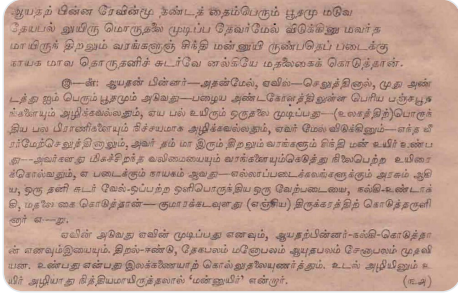 ஆயதற் பின்ன ரேவின்மூ தண்டத் தைம்பெரும் பூதமு மடுவ
தேயபல் லுயிரு மொருதலை முடிப்ப தேவர்மேல் விடுக்கினு மவர்த
மாயிருந் திறலும் வரங்களுஞ் சிந்தி மன்னுயி ருண்பதெப் படைக்கு
நாயக மாவ தொருதனிச் சுடர்வே னல்கியே மதலைகைக் கொடுத்தான்.
இ—ள்: ஆயதன் பின்னர்—அதன்மேல், ஏவில்—செலுத்தினால், முது அண்
டத்து ஐம் பெரும் பூதமும் அடுவது—பழைய அண்டகோளத்திலுள்ள பெரிய பஞ்சபூத
ங்களையும் அழிக்கவல்லதும், ஏய பல் உயிரும் ஒருதலை முடிப்பது—(உலகத்திற்)பொருந்
திய பல பிராணிகளையும் நிச்சயமாக அழிக்கவல்லதும், ஏவர் மேல் விடுக்கினும்—எந்த வீ
ரர்மேற்செலுத்தினாலும், அவர் தம் மா இரும் திறலும் வரங்களும் சிந்தி மன் உயிர் உண்ப
து—அவர்களது மிகச்சிறந்த வலிமையையும் வரங்களையும்கெடுத்து நிலைபெற்ற உயிரை
க்கொல்வதும், எ படைக்கும் நாயகம் ஆவது—எல்லாப்படைக்கலங்களுக்கும் அரசும் ஆகி
ய, ஒரு தனி சுடர் வேல்-ஒப்பற்ற ஒளிபொருந்திய ஒரு வேற்படையை, நல்கி-உண்டாக்
கி, மதலை கை கொடுத்தான்—குமாரக்கடவுளது திருக்கரத்திற் கொடுத்தருளி
னார் எ—று.
ஏவின் அடுவது ஏவின் முடிப்பது எனவும், ஆயதற்பின்னர்-நல்கி-கொடுத்தா
ன் எனவும்இயையும். திறல்-ஈண்டு, தேகபலம் மனோபலம் ஆயுதபலம் சேனாபலம் முதலி
யன. உண்பது என்பது இலக்கணையாற் கொல்லுதலையுணர்த்தும். உடல் அழியினும் உ
யிர் அழியாது நித்தியமாயிருத்தலால் 'மன்னுயிர்' என்றார்.